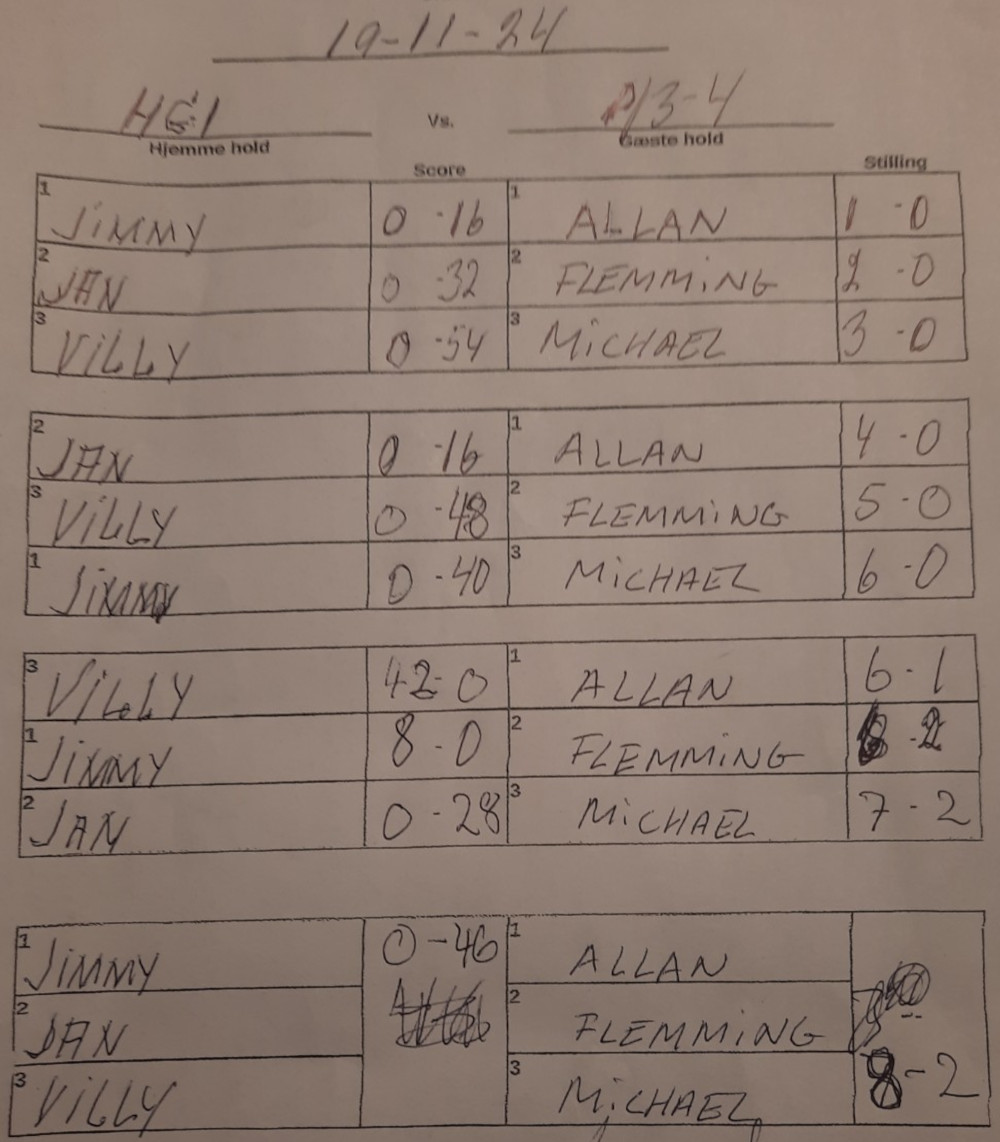 19-11-24
HG1 Vs. P13-4
Hjemme hold Gæste hold
Score Stilling
1 JIMMY 0 - 16 1 ALLAN 1 - 0
2 JAN 0 - 32 2 FLEMMING 2 - 0
3 VILLY 0 - 54 3 MICHAEL 3 - 0
2 JAN 0 - 16 1 ALLAN 4 - 0
3 VILLY 0 - 48 2 FLEMMING 5 - 0
1 JIMMY 0 - 40 3 MICHAEL 6 - 0
3 VILLY 42 - 0 1 ALLAN 6 - 1
1 JIMMY 8 - 0 2 FLEMMING 6 - 2
2 JAN 0 - 28 3 MICHAEL 7 - 2
1 JIMMY 0 - 46 1 ALLAN
2 JAN 2 FLEMMING
3 VILLY 3 MICHAEL 8 - 2